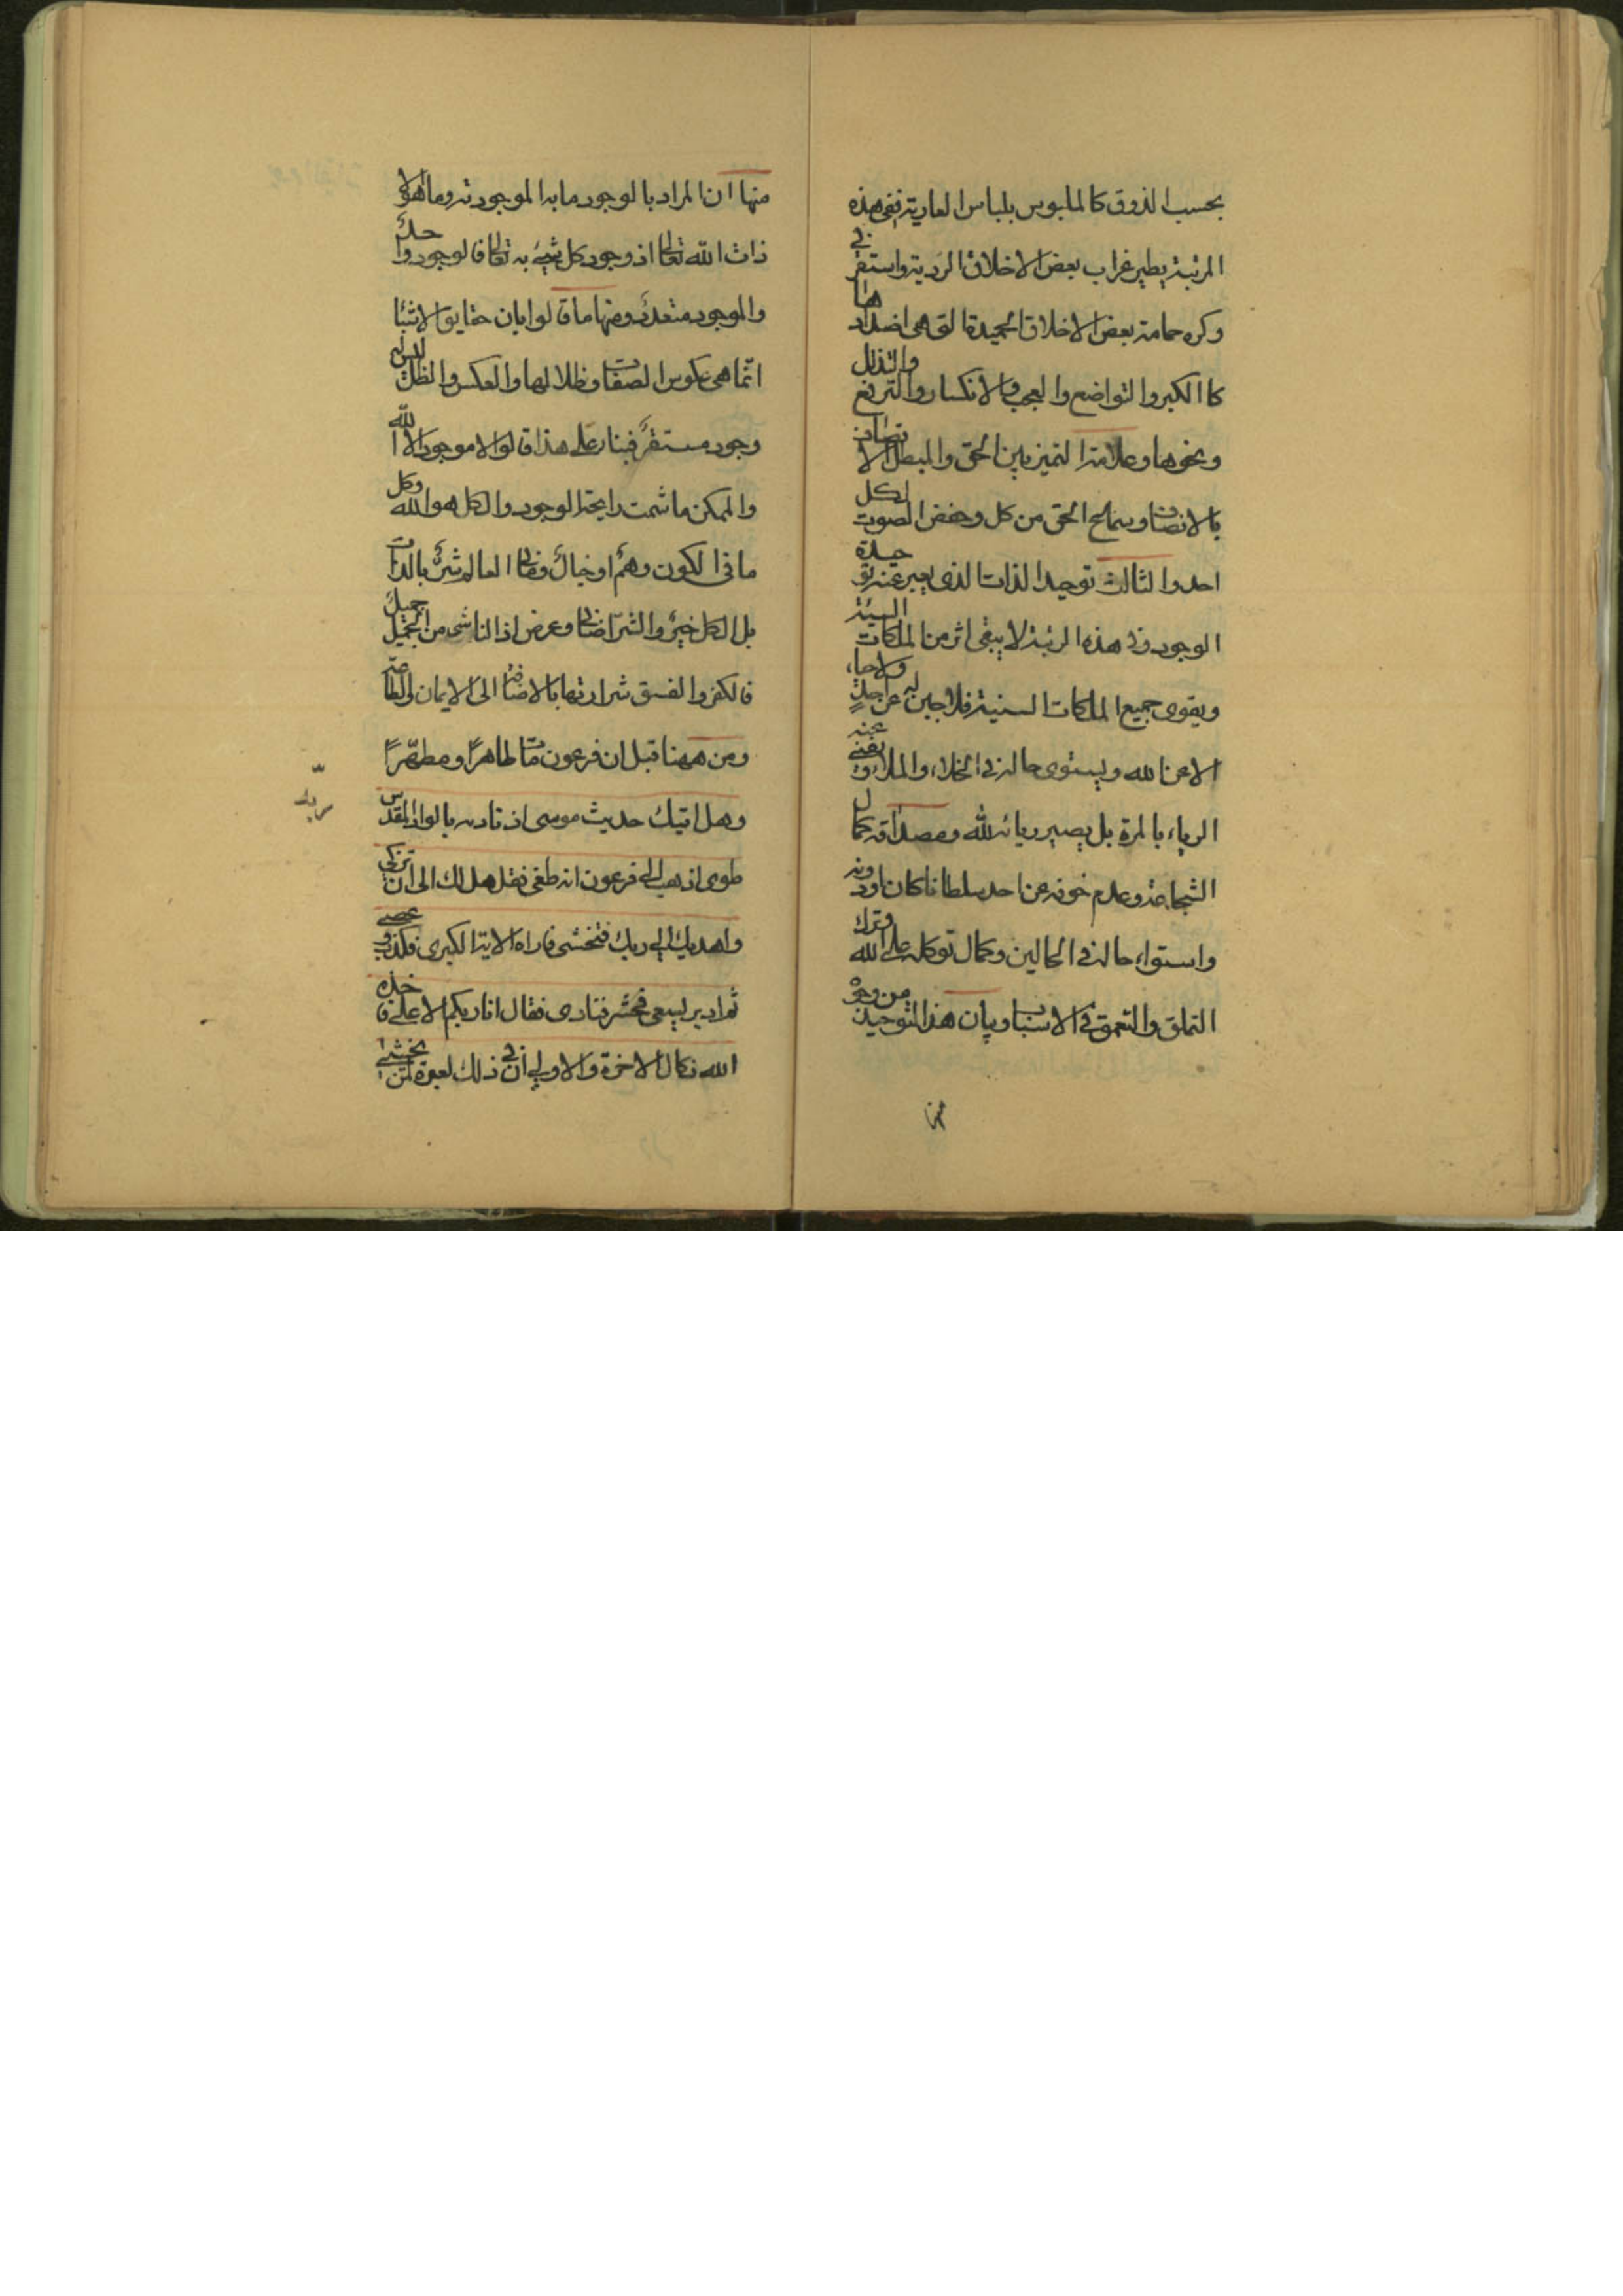 بحسب الذوق كالملبوس بلباس العارية ففى هذه
المرتبة يطير غراب بعض الاخلاق الردية واستقر فى
وكره حمامة بعض الاخلاق الحميدة التى هى اضدادها
كالكبر والتواضع والعجب والانكسار والترفع والتذلل
ونحوها وعلامة التميز بين الحق والمبطل الاتصاف
بالانصاف وسماع الحق من كل وخفض الصوت لكل
احد والثالث توحيد الذات الذى يعبر عنه بوحدة
الوجود وفى هذه الرتبة لا يبقى اثر من الملكات السيئة
ويقوى جميع الملكات السنية فلا جبن له عن احد ولا حياء
الا عن الله ويستوى حاله فى الخلاء والملاء و يفنى عنه
الرياء بالمرة بل يصير ريائه لله ومصداقه كمال
الشجاعة وعدم خوفه عن احد سلطانا كان او دونه
واستواء حاله فى الحالين وكمال توكله على الله وترك
التملق والتعمق فى الاسباب وبيان هذا التوحيد من وجوه
منها
منها ان المراد بالوجود ما به الموجودية وما هو الا
ذات الله تعالى اذ وجود كل شىء به تعالى فالوجود واحد
والموجود متعدد ومنها ما قالوا بان حقايق الاشيا
انما هى عكوس الصفات وظلالها والعكس والظل ليس له
وجود مستقر فبناء على هذا قالوا لا موجود الا الله
والممكن ما شمت رايحة الوجود والكل هو الله وكل
ما فى الكون وهم او خيال وفى العالم شر بالذات
بل الكل خير والشر اضافى وعرض اذ الناشى من الجميل جميل
فالكفر والفسق شرارتها بالاضافة الى الايمان والطاعة
ومن ههنا قيل ان فرعون مات طاهرًا ومطهّرًا
وهل اتيك حديث موسى اذ ناديه بالواد المقدس
ربه
طوى اذهب الى فرعون انه طغى فقل هل لك الى ان تزكى
واهديك الى ربك فتخشى فاراه الاية الكبرى فكذب وعصى
ثم ادبر يسعى فحشر فنادى فقال انا ربكم الاعلى فاخذه
الله نكال الاخرة والاولى ان فى ذلك لعبرة لمن يخشى